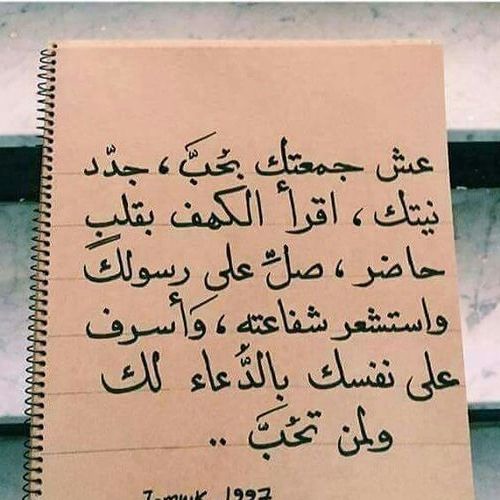 عش جمعتك بحُبَّ ، جدّد
نيتك ، اقرأ الكهف بقلبٍ
حاضر ، صلِّ على رسولك
واستشعر شفاعته ، وَأسرف
على نفسك بالدُّعاء لك
ولمن تحُبَّ ..
1997